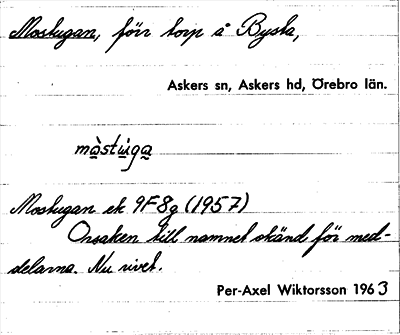 Moskugan, förr torp å Bysta,
Askers sn, Askers hd, Örebro län.
màstùga
Moskugan ek 9F8g (1957)
Orsaken till namnet okänd för med-
delarna. Nu rivet.
Per-Axel Wiktorsson 1963